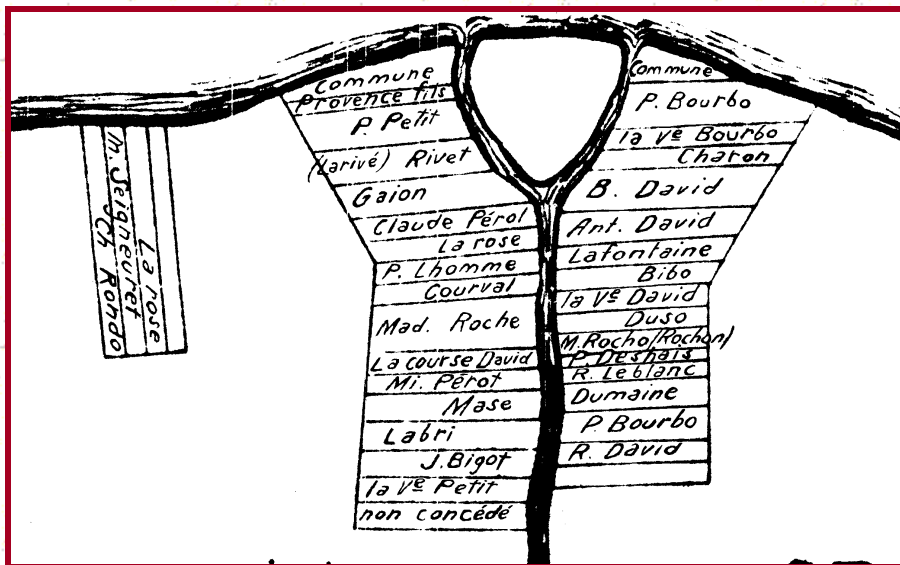 Commune
Provence fils
P. Petit
(Larivé) Rivet
Gaion
Claude Pérol
La rose
P. Lhomme
Courval
Mad. Roche
La course David
Mi. Pérot
Mase
Labri
J. Bigot
la Vᵉ Petit
non concédé
Commune
P. Bourbo
la Vᵉ Bourbo
Charon
B. David
Ant. David
Lafontaine
Bibo
la Vᵉ David
Duso
M. Rocho (Rochon)
P. Deshais
R. Leblanc
Dumaine
P. Bourbo
R. David
La rose
m. Seigneuret
JCh Rondo